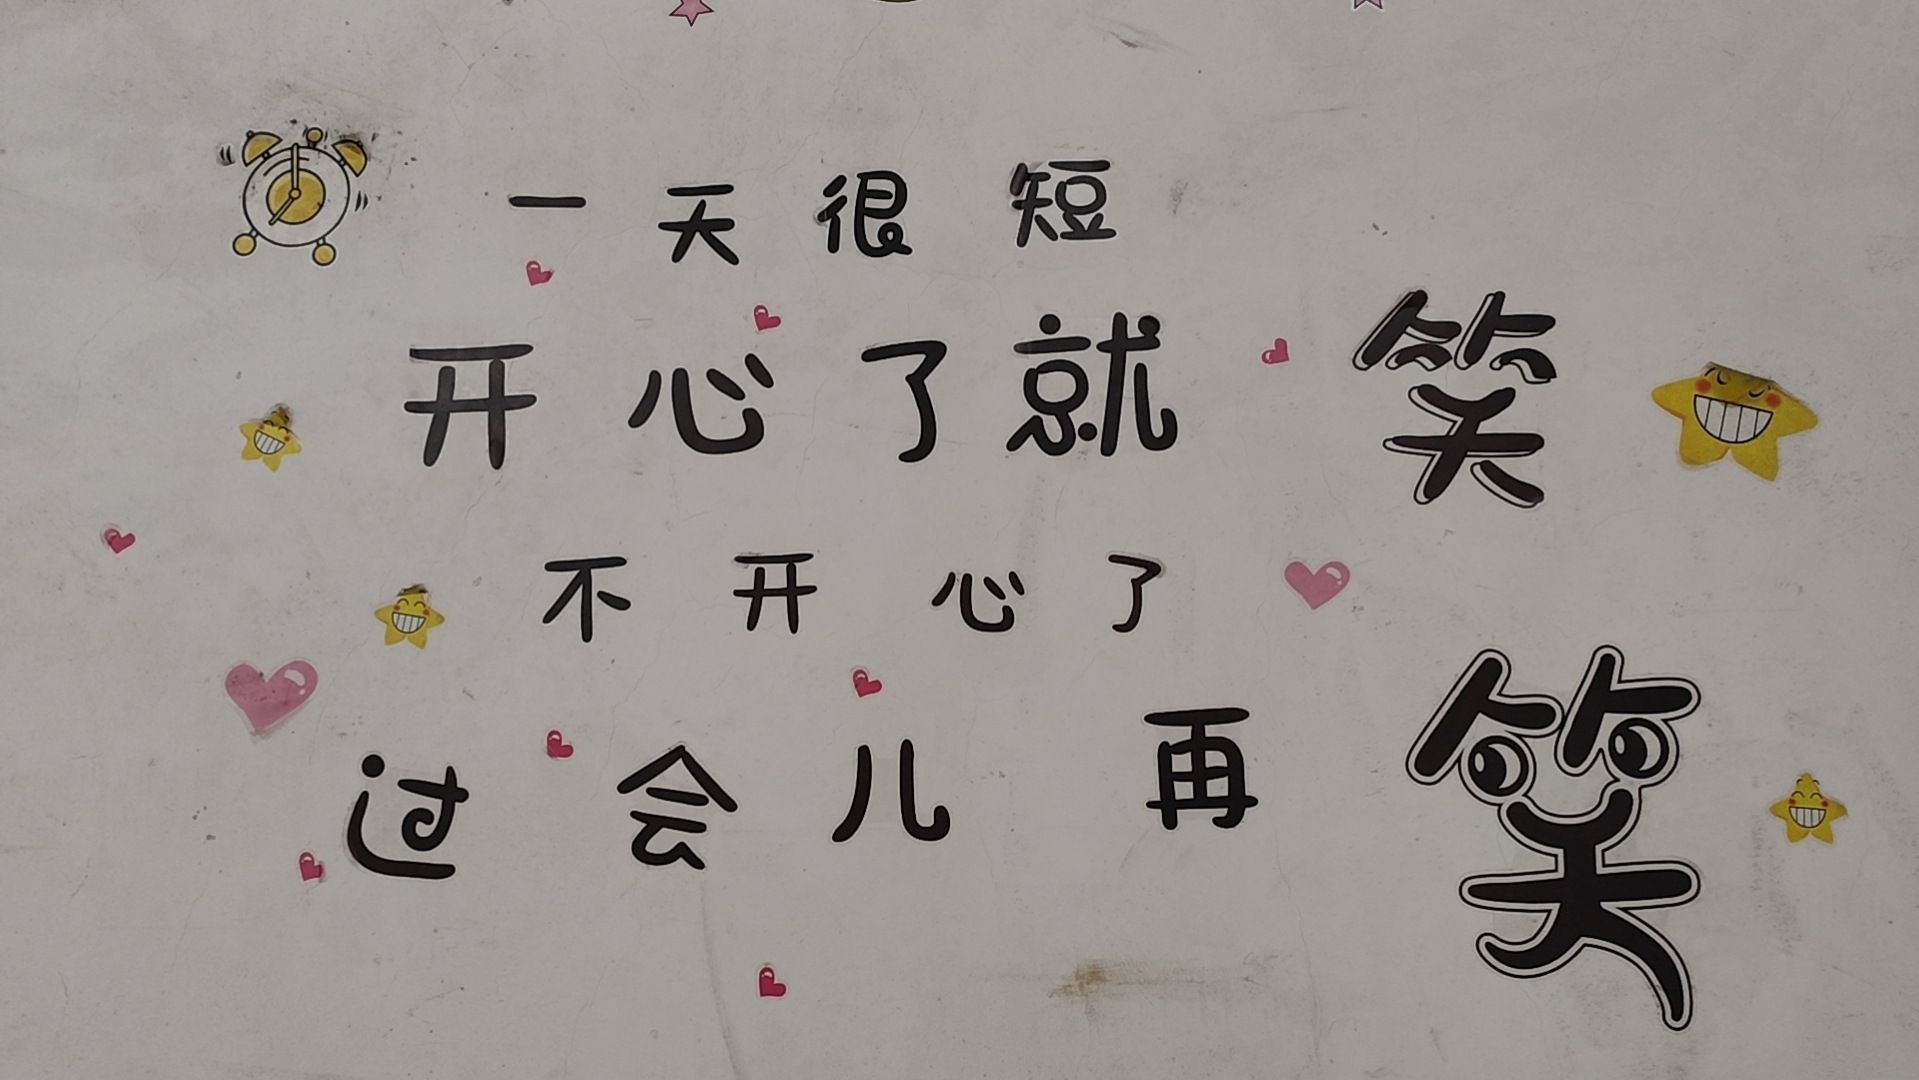 一天很短
开心了就笑
不开心了
过会儿再笑